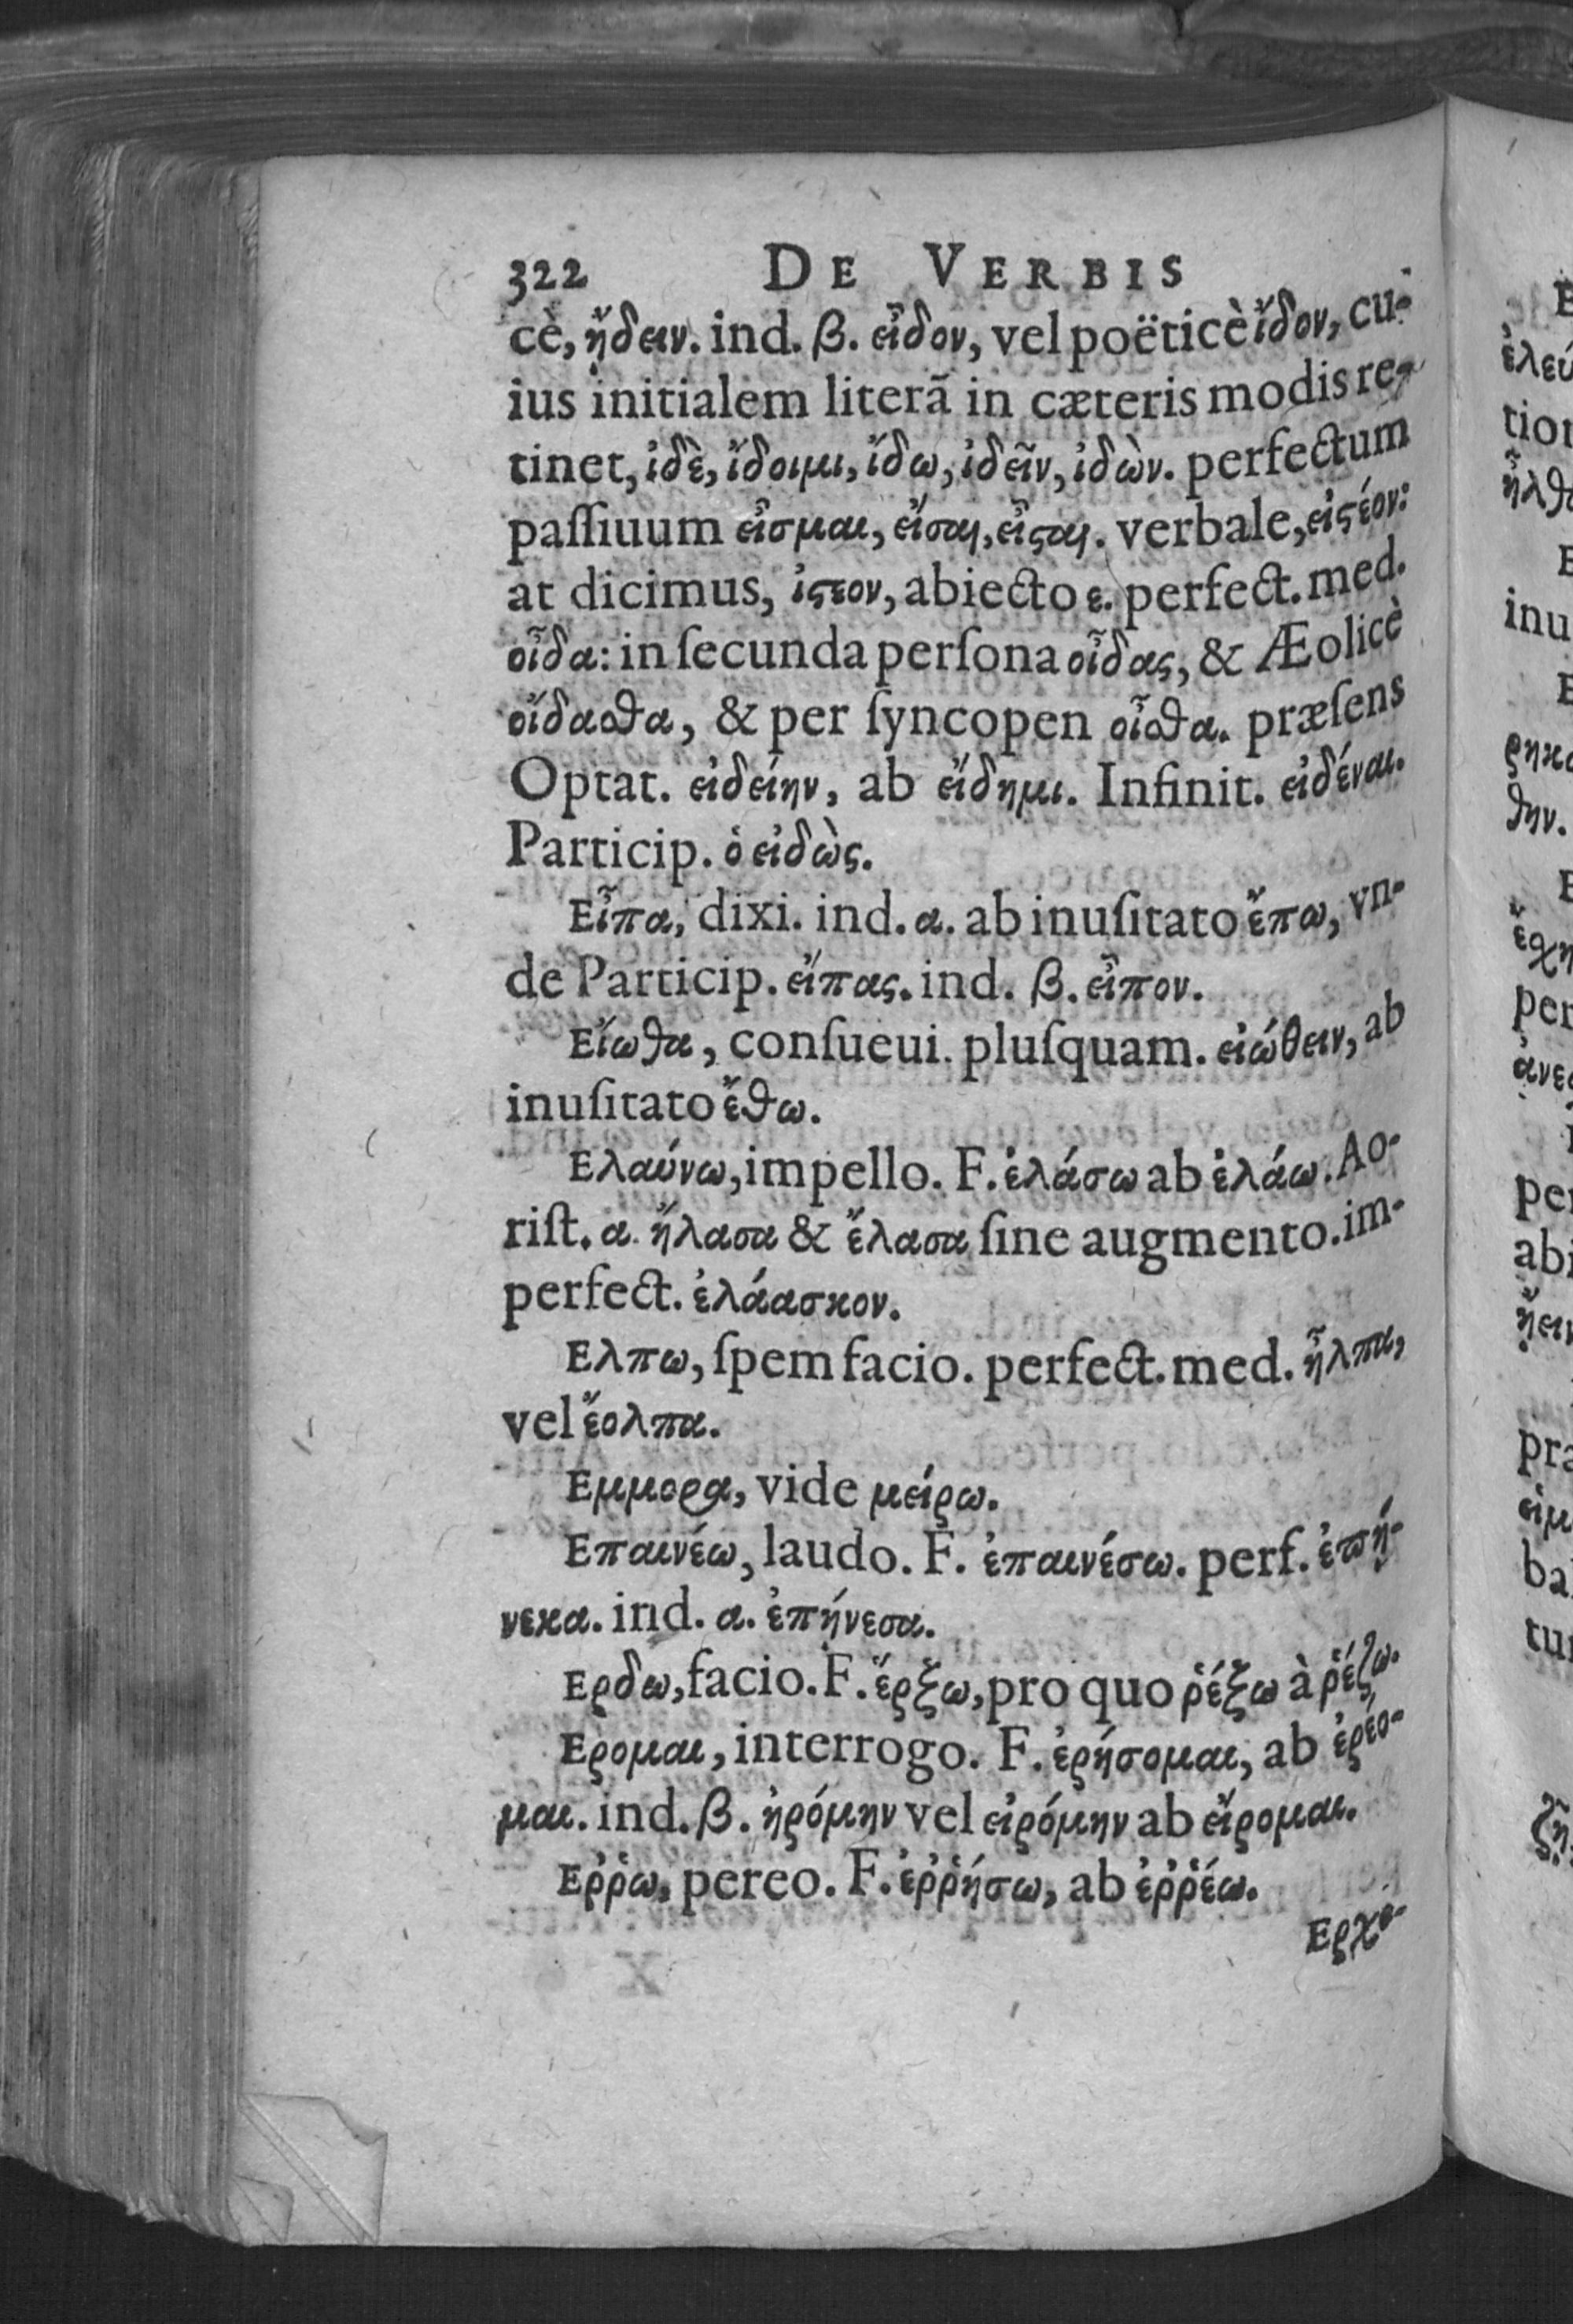 322 DE VERBIS
cè, ᾔδειν. ind. β. εἶδον, vel poëticè ἴδον, cu-
ius initialem literã in cæteris modis re-
tinet, ἰδὲ, ἴδοιμι, ἴδω, ἰδεῖν, ἰδὼν. perfectum
paſſiuum εἶσμαι, εἶσαι, εἶϛαι. verbale, εἰϛέον:
at dicimus, ἰϛεον, abiecto ε. perfect. med.
οἶδα: in ſecunda perſona οἶδας, & Æolicè
οἴδασθα, & per ſyncopen οἶσθα. præſens
Optat. εἰδείην, ab εἴδημι. Infinit. εἰδέναι.
Particip. ὁ εἰδὼς.
Εἶπα, dixi. ind. α. ab inuſitato ἔπω, vn-
de Particip. εἴπας. ind. β. εἶπον.
Εἴωθα, conſueui. pluſquam. εἰώθειν, ab
inuſitato ἔθω.
Ελαύνω, impello. F. ἐλάσω ab ἐλάω. Ao-
riſt. α. ἤλασα & ἔλασα ſine augmento. im-
perfect. ἐλάασκον.
Ελπω, ſpem facio. perfect. med. ἦλπα,
vel ἔολπα.
Εμμορα, vide μείρω.
Επαινέω, laudo. F. ἐπαινέσω. perf. ἐπῄ-
νεκα. ind. α. ἐπῄνεσα.
Ερδω, facio. F. ἔρξω, pro quo ῥέξω à ῥέζω.
Ερομαι, interrogo. F. ἐρήσομαι, ab ἐρέο-
μαι. ind. β. ἠρόμην vel εἰρόμην ab εἴρομαι.
Εῤῥω, pereo. F. ἐῤῥήσω, ab ἐῤῥέω.
Ερχο-